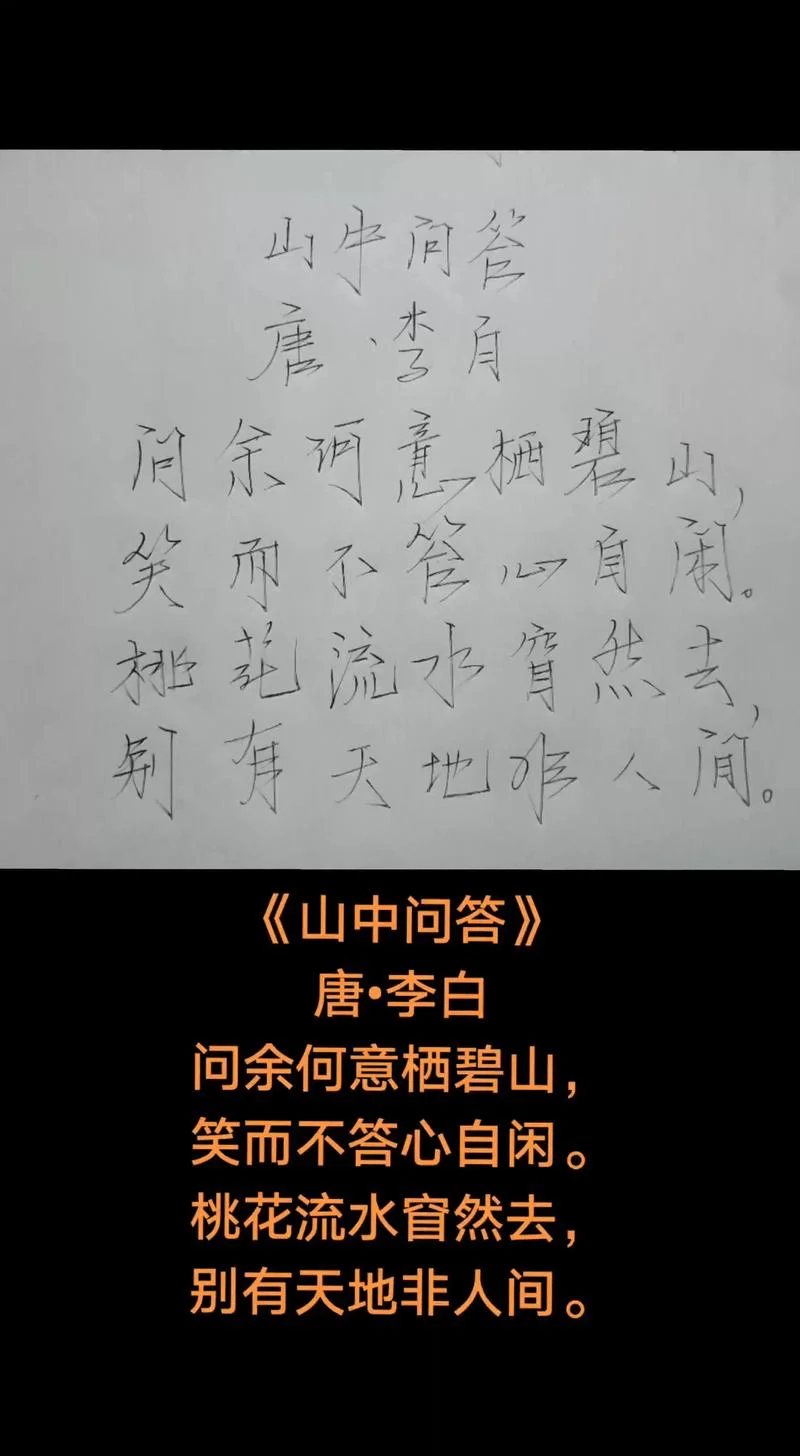 山中问答
唐·李白
问余何意栖碧山,
笑而不答心自闲。
桃花流水窅然去,
别有天地非人间。
《山中问答》
唐•李白
问余何意栖碧山,
笑而不答心自闲。
桃花流水窅然去,
别有天地非人间。